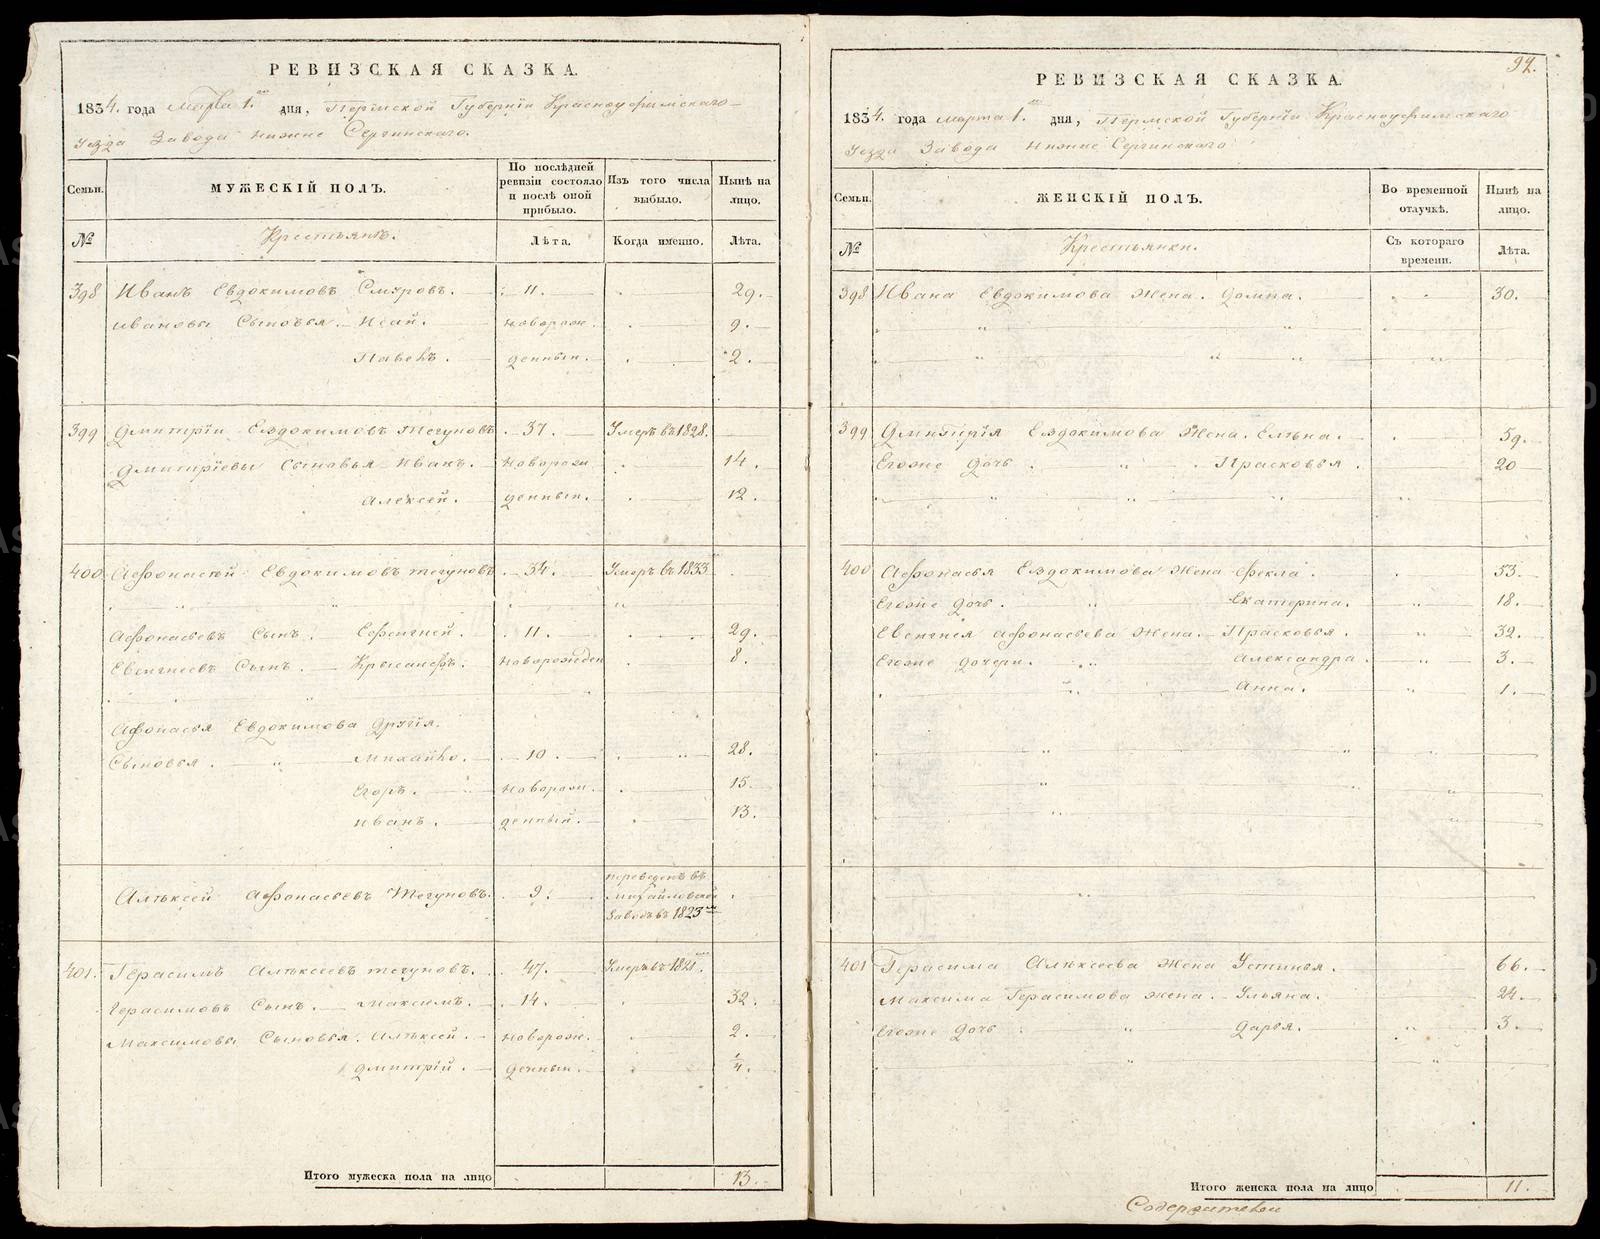 РЕВИЗСКАЯ СКАЗКА.
1834. года марта 1. дня, Пермской Губерніи Красноуфимскаго
Уезда Завода Нижне Сергинскаго.
Семьи.
МУЖЕСКІЙ ПОЛЪ.
По послѣдней ревизіи состояло и послѣ оной прибыло.
Изъ того числа выбыло.
Нынѣ на лицо.
№
Крестьянъ.
Лѣта.
Когда именно.
Лѣта.
398 Иванъ Евдокимовъ 11. 29.
Ивановы Сыновья. Исай. новорож. 9.
Павелъ. денныи. 2.
399 Дмитріи Евдокимовъ Тегуновъ 37. Умеръ въ 1828.
Дмитріевы Сыновья Иванъ. новорож 14.
Алексей. денныи. 12.
400 Афонасей Евдокимовъ тегуновъ 34. Умеръ въ 1833
Афонасьевъ Сынъ. Евгеней. 11. 29.
Евгениевъ Сынъ. новорожден 8.
Афонасья Евдокимова другія.
Сыновья. Михайло. 10. 28.
Егоръ. новорож. 15.
Иванъ. денный. 13.
Алѣксей Афонасьевъ Тегуновъ. 9. переведенъ въ
Михайловской
заводъ въ 1823м
401. Герасимъ Алѣксеевъ тегуновъ. 47. Умеръ въ 1821.
Герасимовъ Сынъ. Максимъ. 14. 32.
Максимовы Сыновья. Алѣксей. новорож. 2.
Дмитрій. денныи. 1/4.
Итого мужеска пола на лицо 13.
92.
РЕВИЗСКАЯ СКАЗКА.
1834. года марта 1. дня, Пермской Губерніи Красноуфимскаго
Уезда Завода Нижне Сергинскаго
Семьи.
ЖЕНСКІЙ ПОЛЪ.
Во временной отлучкѣ.
Нынѣ на лицо.
№
Крестьянки.
Съ котораго времени.
Лѣта.
398 Ивана Евдокимова жена. Домна. 30.
399 Дмитрія Евдокимова Жена. Елѣна. 59.
Егоже дочь. Прасковья. 20
400 Афонасья Евдокимова жена Фекла. 53.
Егоже дочь. Екатерина. 18.
Евгения Афонасьева жена. Прасковья. 32.
Егоже дочери. Александра. 3.
Анна. 1.
401 Герасима Алѣксеева жена Устинья. 66.
Максима Герасимова жена. Ульяна. 24.
Егоже дочь Дарья. 3.
Итого женска пола на лицо 11.